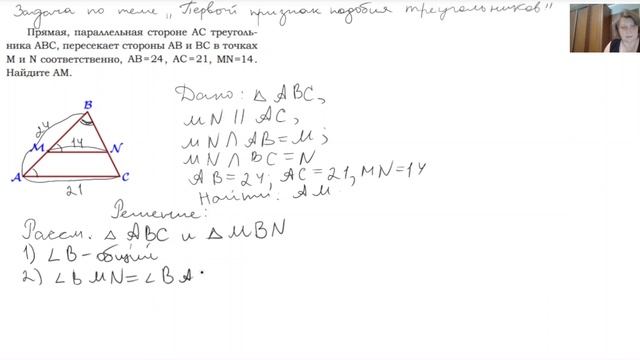 Задача по теме „Первый признак подобия треугольников"
Прямая, параллельная стороне AC треуголь-
ника ABC, пересекает стороны AB и BC в точках
M и N соответственно, AB=24, AC=21, MN=14.
Найдите AM.
Дано: △ ABC,
MN || AC,
MN ∩ AB = M;
MN ∩ BC = N
AB = 24; AC = 21, MN = 14
Найти: AM.
B
24
M
14
N
A
C
21
Решение:
Рассм. △ ABC и △ MBN
1) ∠B - общий
2) ∠BMN = ∠BA